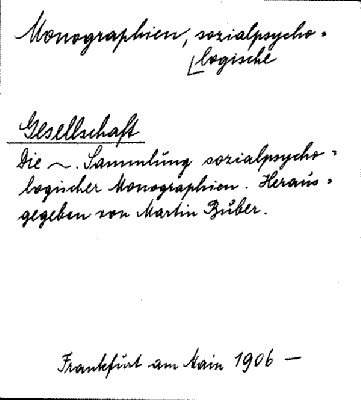 Monographien, sozialpsycho-
logische
Gesellschaft
Die ~. Sammlung sozialpsycho-
logischer Monographien. Heraus-
gegeben von Martin Buber.
Frankfurt am Main 1906 —